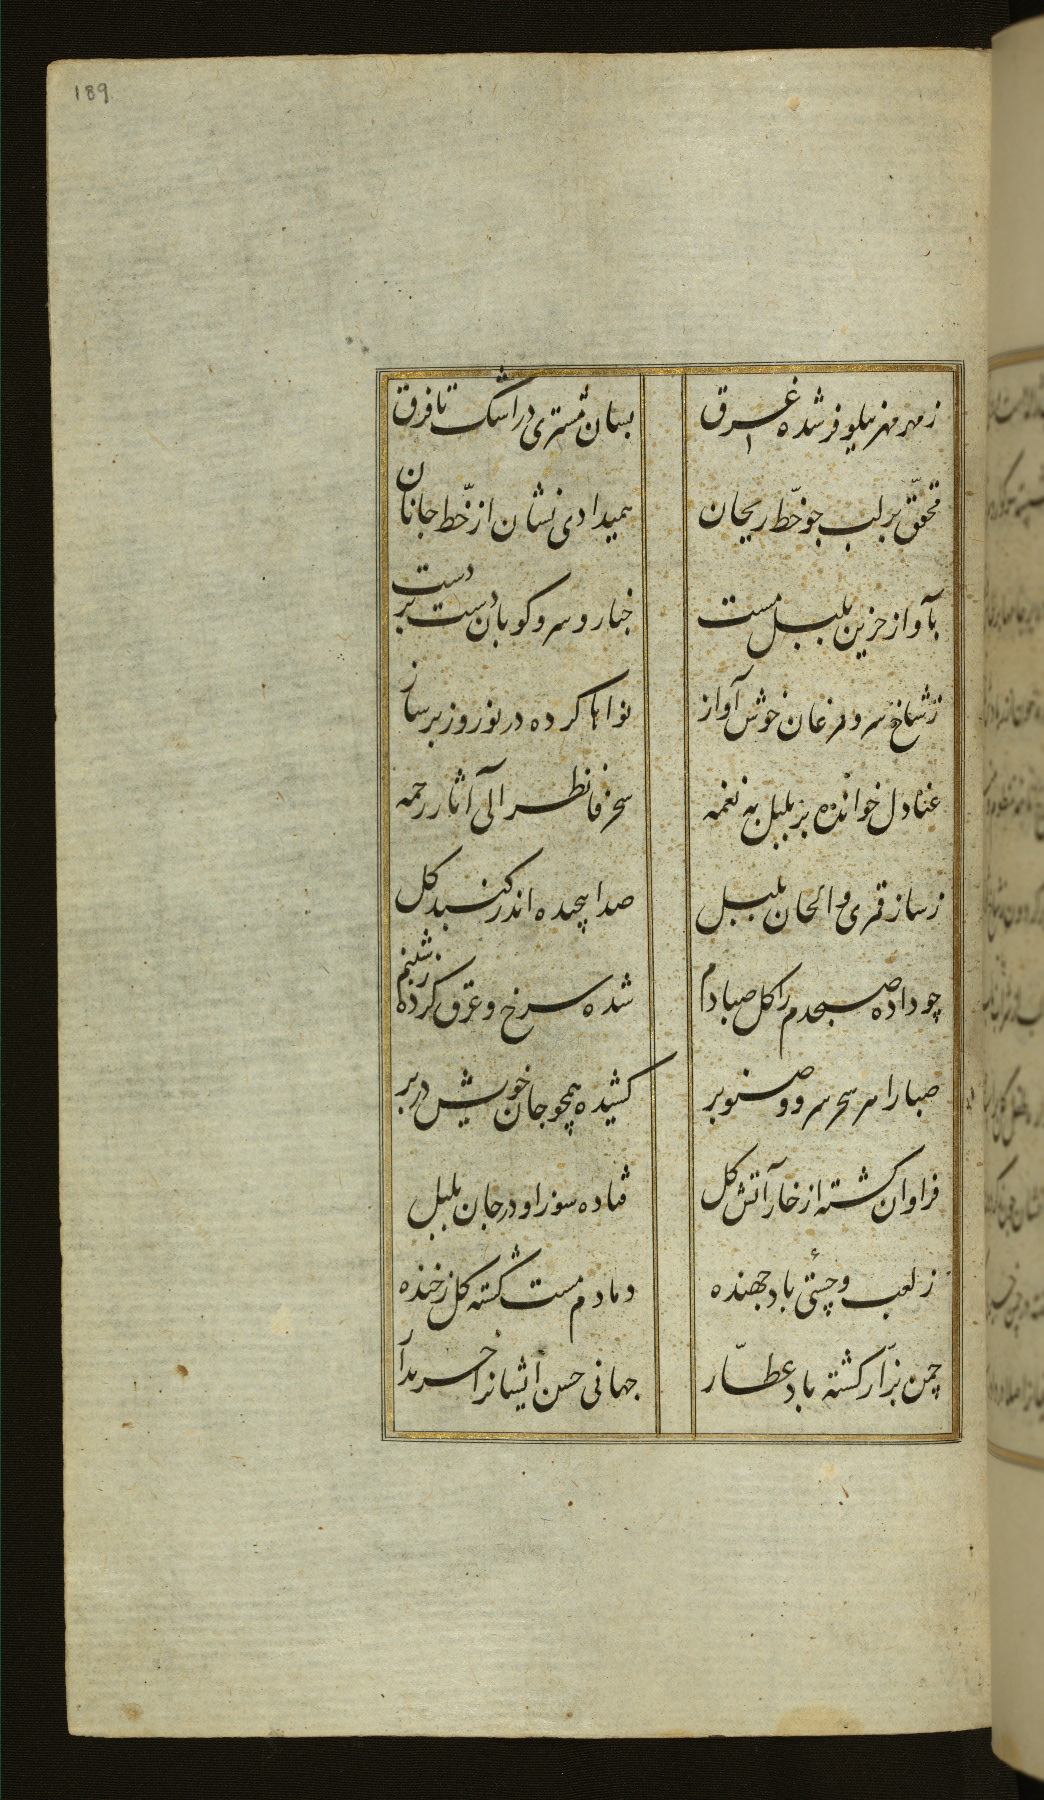 189
ز مهر مهر نیلوفر شده غرق
بسان مشتری در اشک تا فرق
محقّق بر لب جو خطّ ریحان
همیدادی نشان از خّط جانان
بآواز حزین بلبل مست
خبار و سرو کوبان دست بر دست
ز شاخ سرو مرغان خوش آواز
نواها کرده در نوروز بر ساز
عنادل خوانده بر بلبل به نغمه
سحر فانظر الی آثار رحمه
ز ساز قمری و الحان بلبل
صدا پیچیده اندر کنبد کل
چو داده صبحدم را کل صبا دم
شده سرخ و عرق کرده ز شبنم
صبا را هر سحر سرو و صنوبر
کشیده همچو جان خویش در بر
فراوان کشته از خار آتش کل
فتاده سوز او در جان بلبل
ز لعب و چستئ باد جهنده
دمادم مست کشته کل ز خنده
چمن بزّار کشته باد عطّار
جهانی حسن ایشانرا خریدار